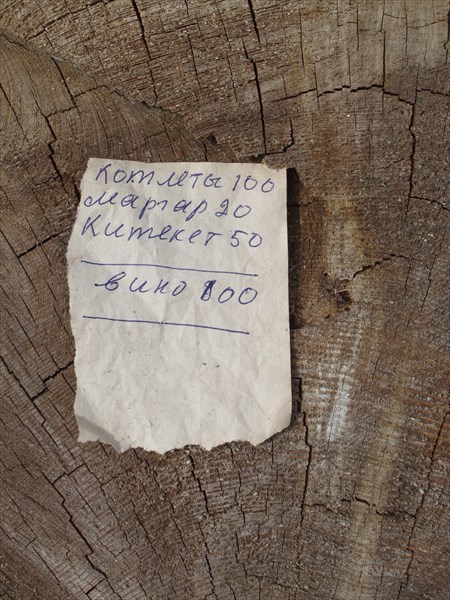 Котлеты 100
Маргар 20
Китекет 50
вино 100